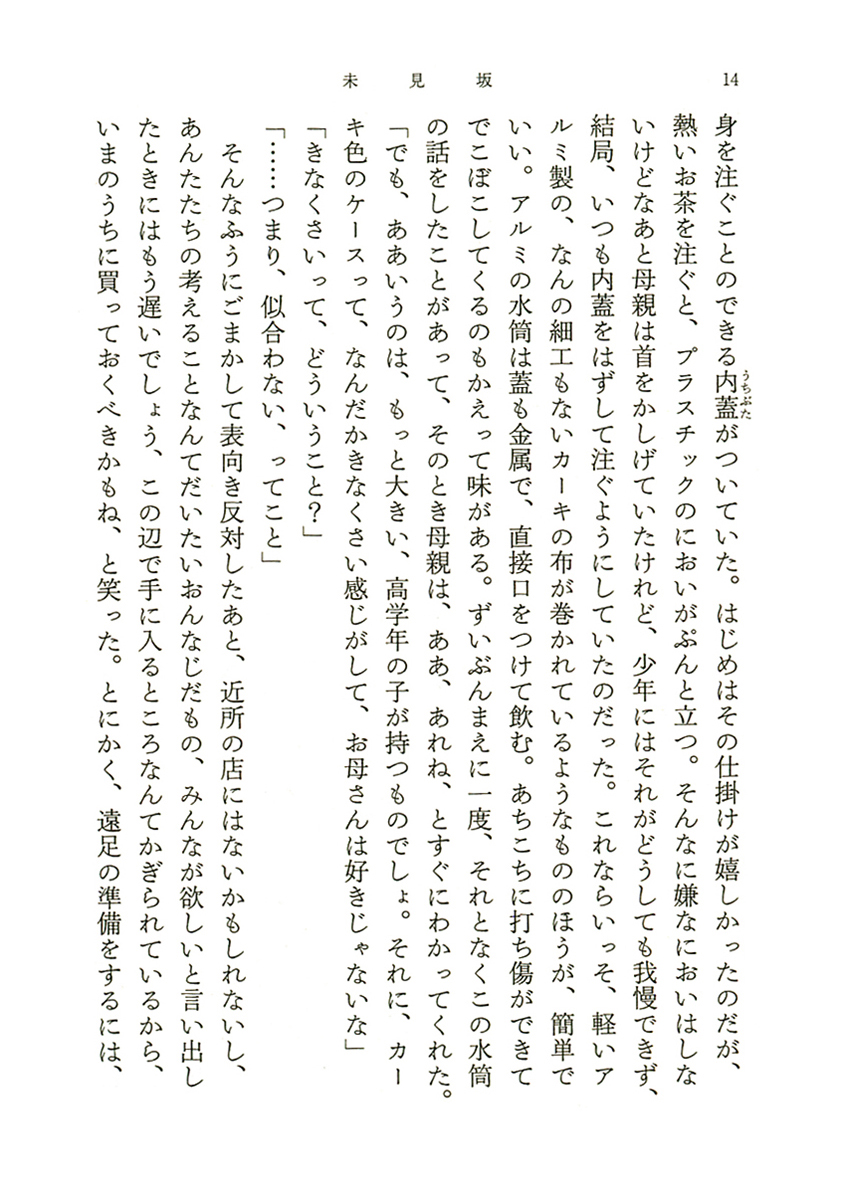 未見坂
14
身を注ぐことのできる内蓋がついていた。はじめはその仕掛けが嬉しかったのだが、
うちぶた
熱いお茶を注ぐと、プラスチックのにおいがぷんと立つ。そんなに嫌なにおいはしな
いけどなあと母親は首をかしげていたけれど、少年にはそれがどうしても我慢できず、
結局、いつも内蓋をはずして注ぐようにしていたのだった。これならいっそ、軽いア
ルミ製の、なんの細工もないカーキの布が巻かれているようなもののほうが、簡単で
いい。アルミの水筒は蓋も金属で、直接口をつけて飲む。あちこちに打ち傷ができて
でこぼこしてくるのもかえって味がある。ずいぶんまえに一度、それとなくこの水筒
の話をしたことがあって、そのとき母親は、ああ、あれね、とすぐにわかってくれた。
「でも、ああいうのは、もっと大きい、高学年の子が持つものでしょ。それに、カー
キ色のケースって、なんだかきなくさい感じがして、お母さんは好きじゃないな」
「きなくさいって、どういうこと？」
「……つまり、似合わない、ってこと」
そんなふうにごまかして表向き反対したあと、近所の店にはないかもしれないし、
あんたたちの考えることなんてだいたいおんなじだもの、みんなが欲しいと言い出し
たときにはもう遅いでしょう、この辺で手に入るところなんてかぎられているから、
いまのうちに買っておくべきかもね、と笑った。とにかく、遠足の準備をするには、